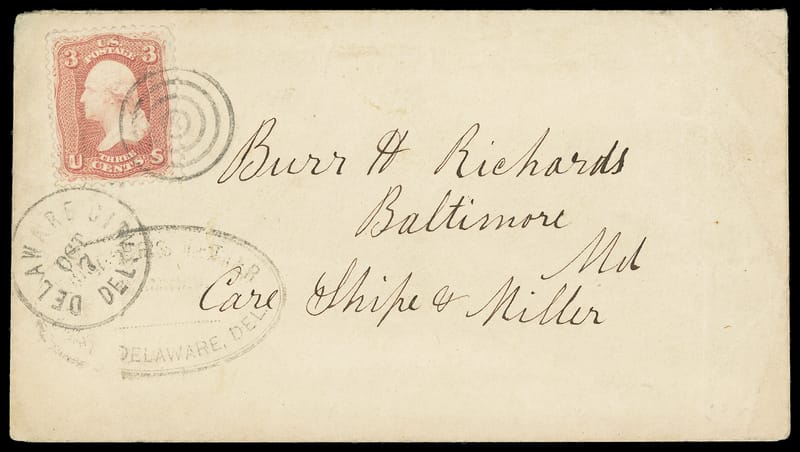 3 U.S. 3
POSTAGE
THREE
U CENTS S
Burr H Richards
Baltimore
Md
Care Shipe & Miller
DELAWARE CITY
OCT
DEL
DELAWARE, DEL.